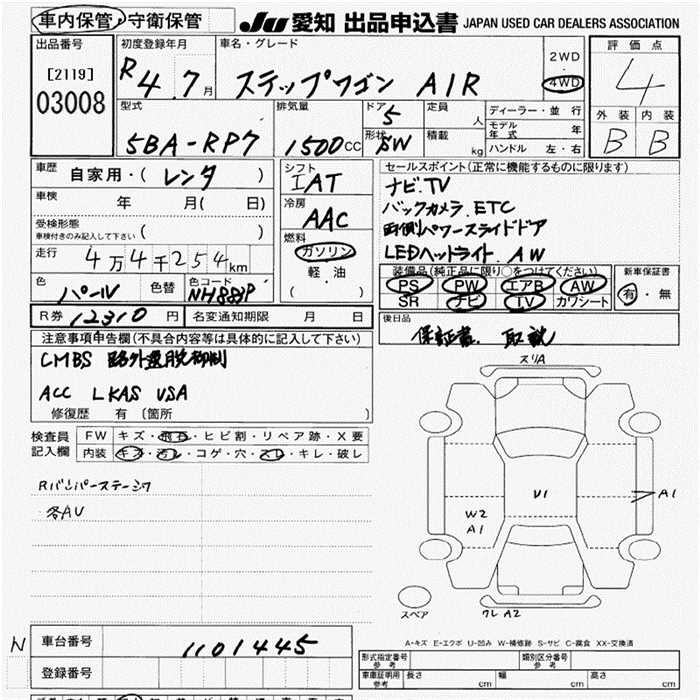 車内保管・守衛保管 JU 愛知 出品申込書 JAPAN USED CAR DEALERS ASSOCIATION
出品番号 初度登録年月 車名・グレード 2WD 評価点
[2119] R 4.7月 ステップワゴン AIR 4WD 4
03008 型式 排気量 ドア 5 定員 人 ディーラー・並行 外装 内装
5BA-RP7 1500cc 形状 SW 積載 kg モデル年式 年 B B
ハンドル 左・右
車歴 自家用・(レンタ) シフト IAT セールスポイント(正常に機能するものに限ります)
車検 年 月( 日) 冷房 AAC ナビ.TV
受検形態 ( ) バックカメラ.ETC
車検付きのみ記入して下さい 両側パワースライドドア
走行 4万4千254km 燃料 ガソリン LEDヘッドライト.AW
軽・油 装備品(純正品に限り○をつけてください) 新車保証書
色 パール 色替 色コード NH883P ( ) PS PW エアB AW 有・無
SR ナビ TV カワシート
R券 12310円 名変通知期限 月 日 後日品
注意事項申告欄(不具合内容等は具体的に記入して下さい) 保証書. 取説
CMBS 路外逸脱抑制 スリA
ACC LKAS VSA
修復歴 有 [箇所 ]
検査員 FW キズ・飛石・ヒビ割・リペア跡・X要
記入欄 内装 キズ・汚レ・コゲ・穴・スレ・キレ・破レ
Rバンパーステージワ
各AU
U1 A1
W2
A1
スペア クレA2
A-キズ E-エクボ U-凹み W-補修跡 S-サビ C-腐食 XX-交換済
N 車台番号 1101445
登録番号
型式指定番号 参考 類別区分番号 参考
車庫証明用 参考 長さ cm 幅 cm 高さ cm